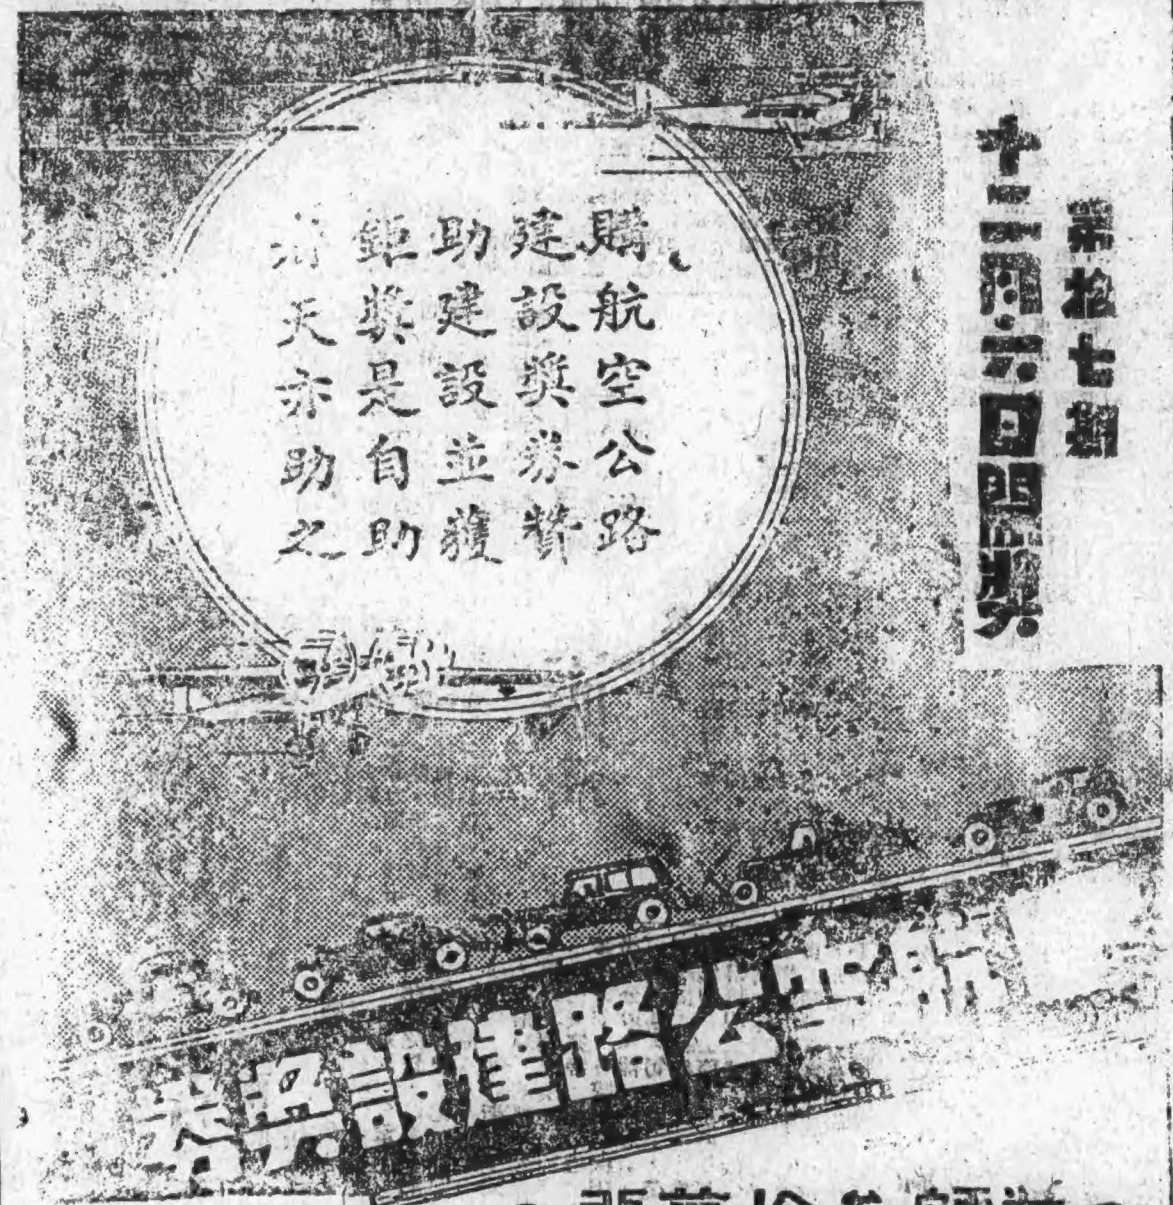 第拾七期
十二月六日開獎
購航空公路
建設獎券贊
助建設並獲
鉅獎是自助
者天亦助之
航空公路建設獎券